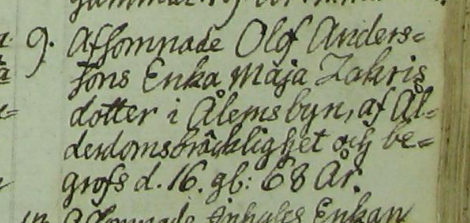 9. Afsomnade Olof Anders=
sons Enka Maja Zakris
dotter i Ålems byn, af Ål=
derdomsbräcklighet och be=
grofs d. 16. gl: 68 År.
Afsomnade Enkan